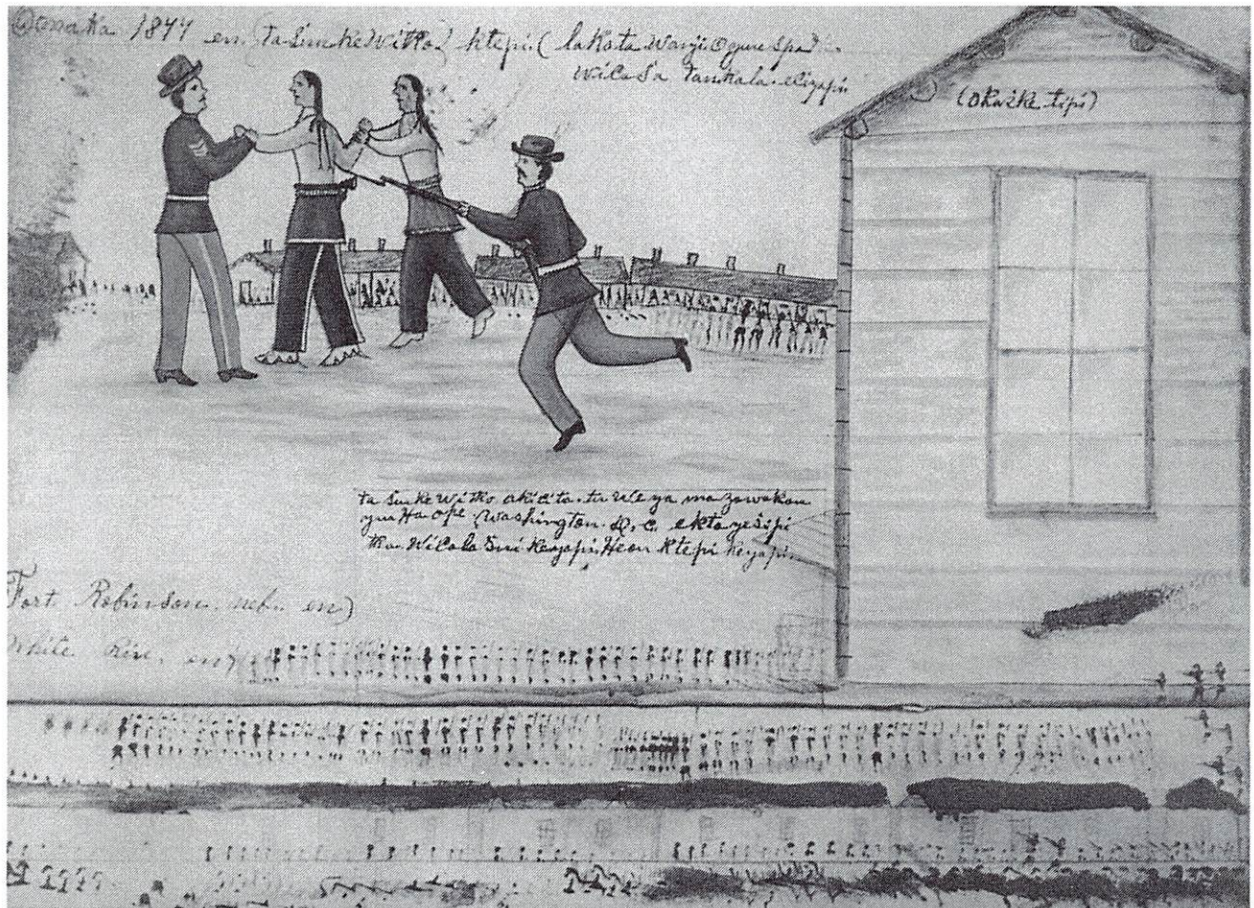 Omaka 1877 en (ta Sunke Witko) ktepi (lakota Wanji Oyuspa)
Wicasa Tankala eciyapi
(Okaske tipi)
ta Sunke Witko akicita tuweya mazawakan
yuha ope Washington. D. C. ekta yesipi
tka Wicala Sni Keyapi. Heon Ktepi keyapi.
Fort Robinson. nebr. en)
White River en